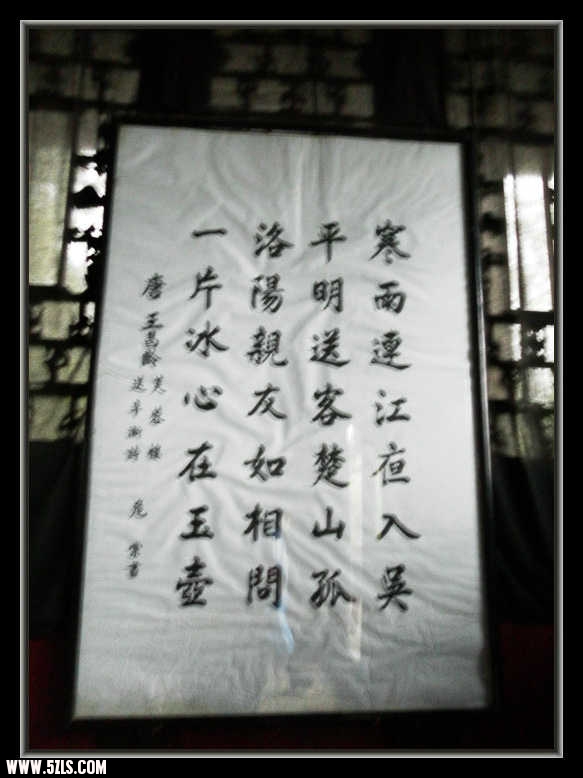 寒雨連江夜入吳
平明送客楚山孤
洛陽親友如相問
一片冰心在玉壺
唐 王昌齡 芙蓉樓
送辛漸詩
書
WWW.5ZLS.COM